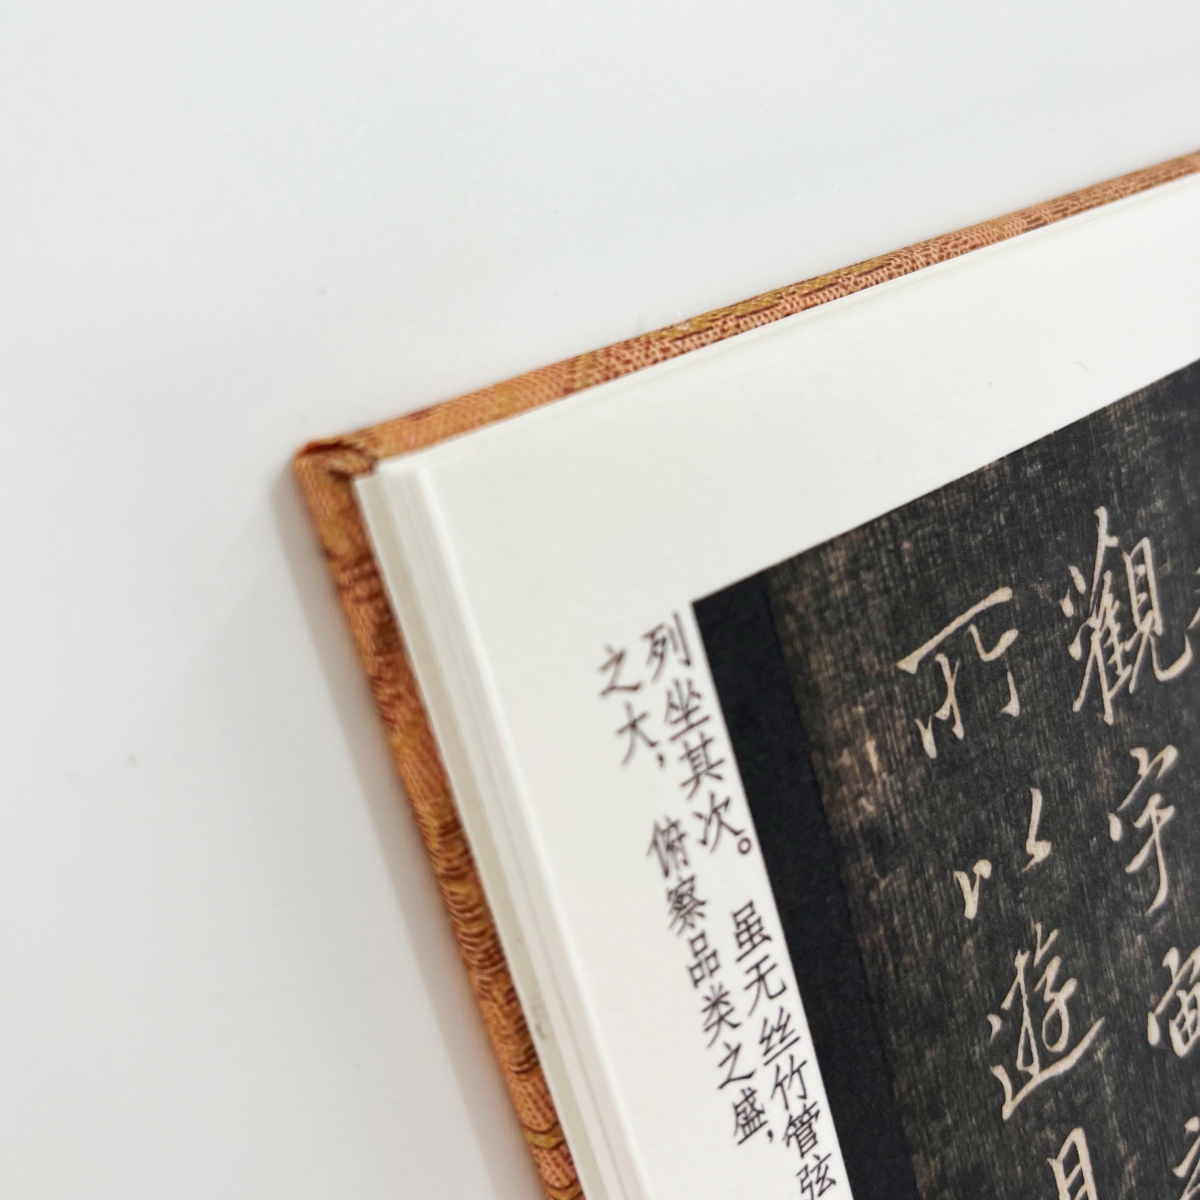 觀宇宙
所以遊目
列坐其次。虽无丝竹管弦
之大，俯察品类之盛，